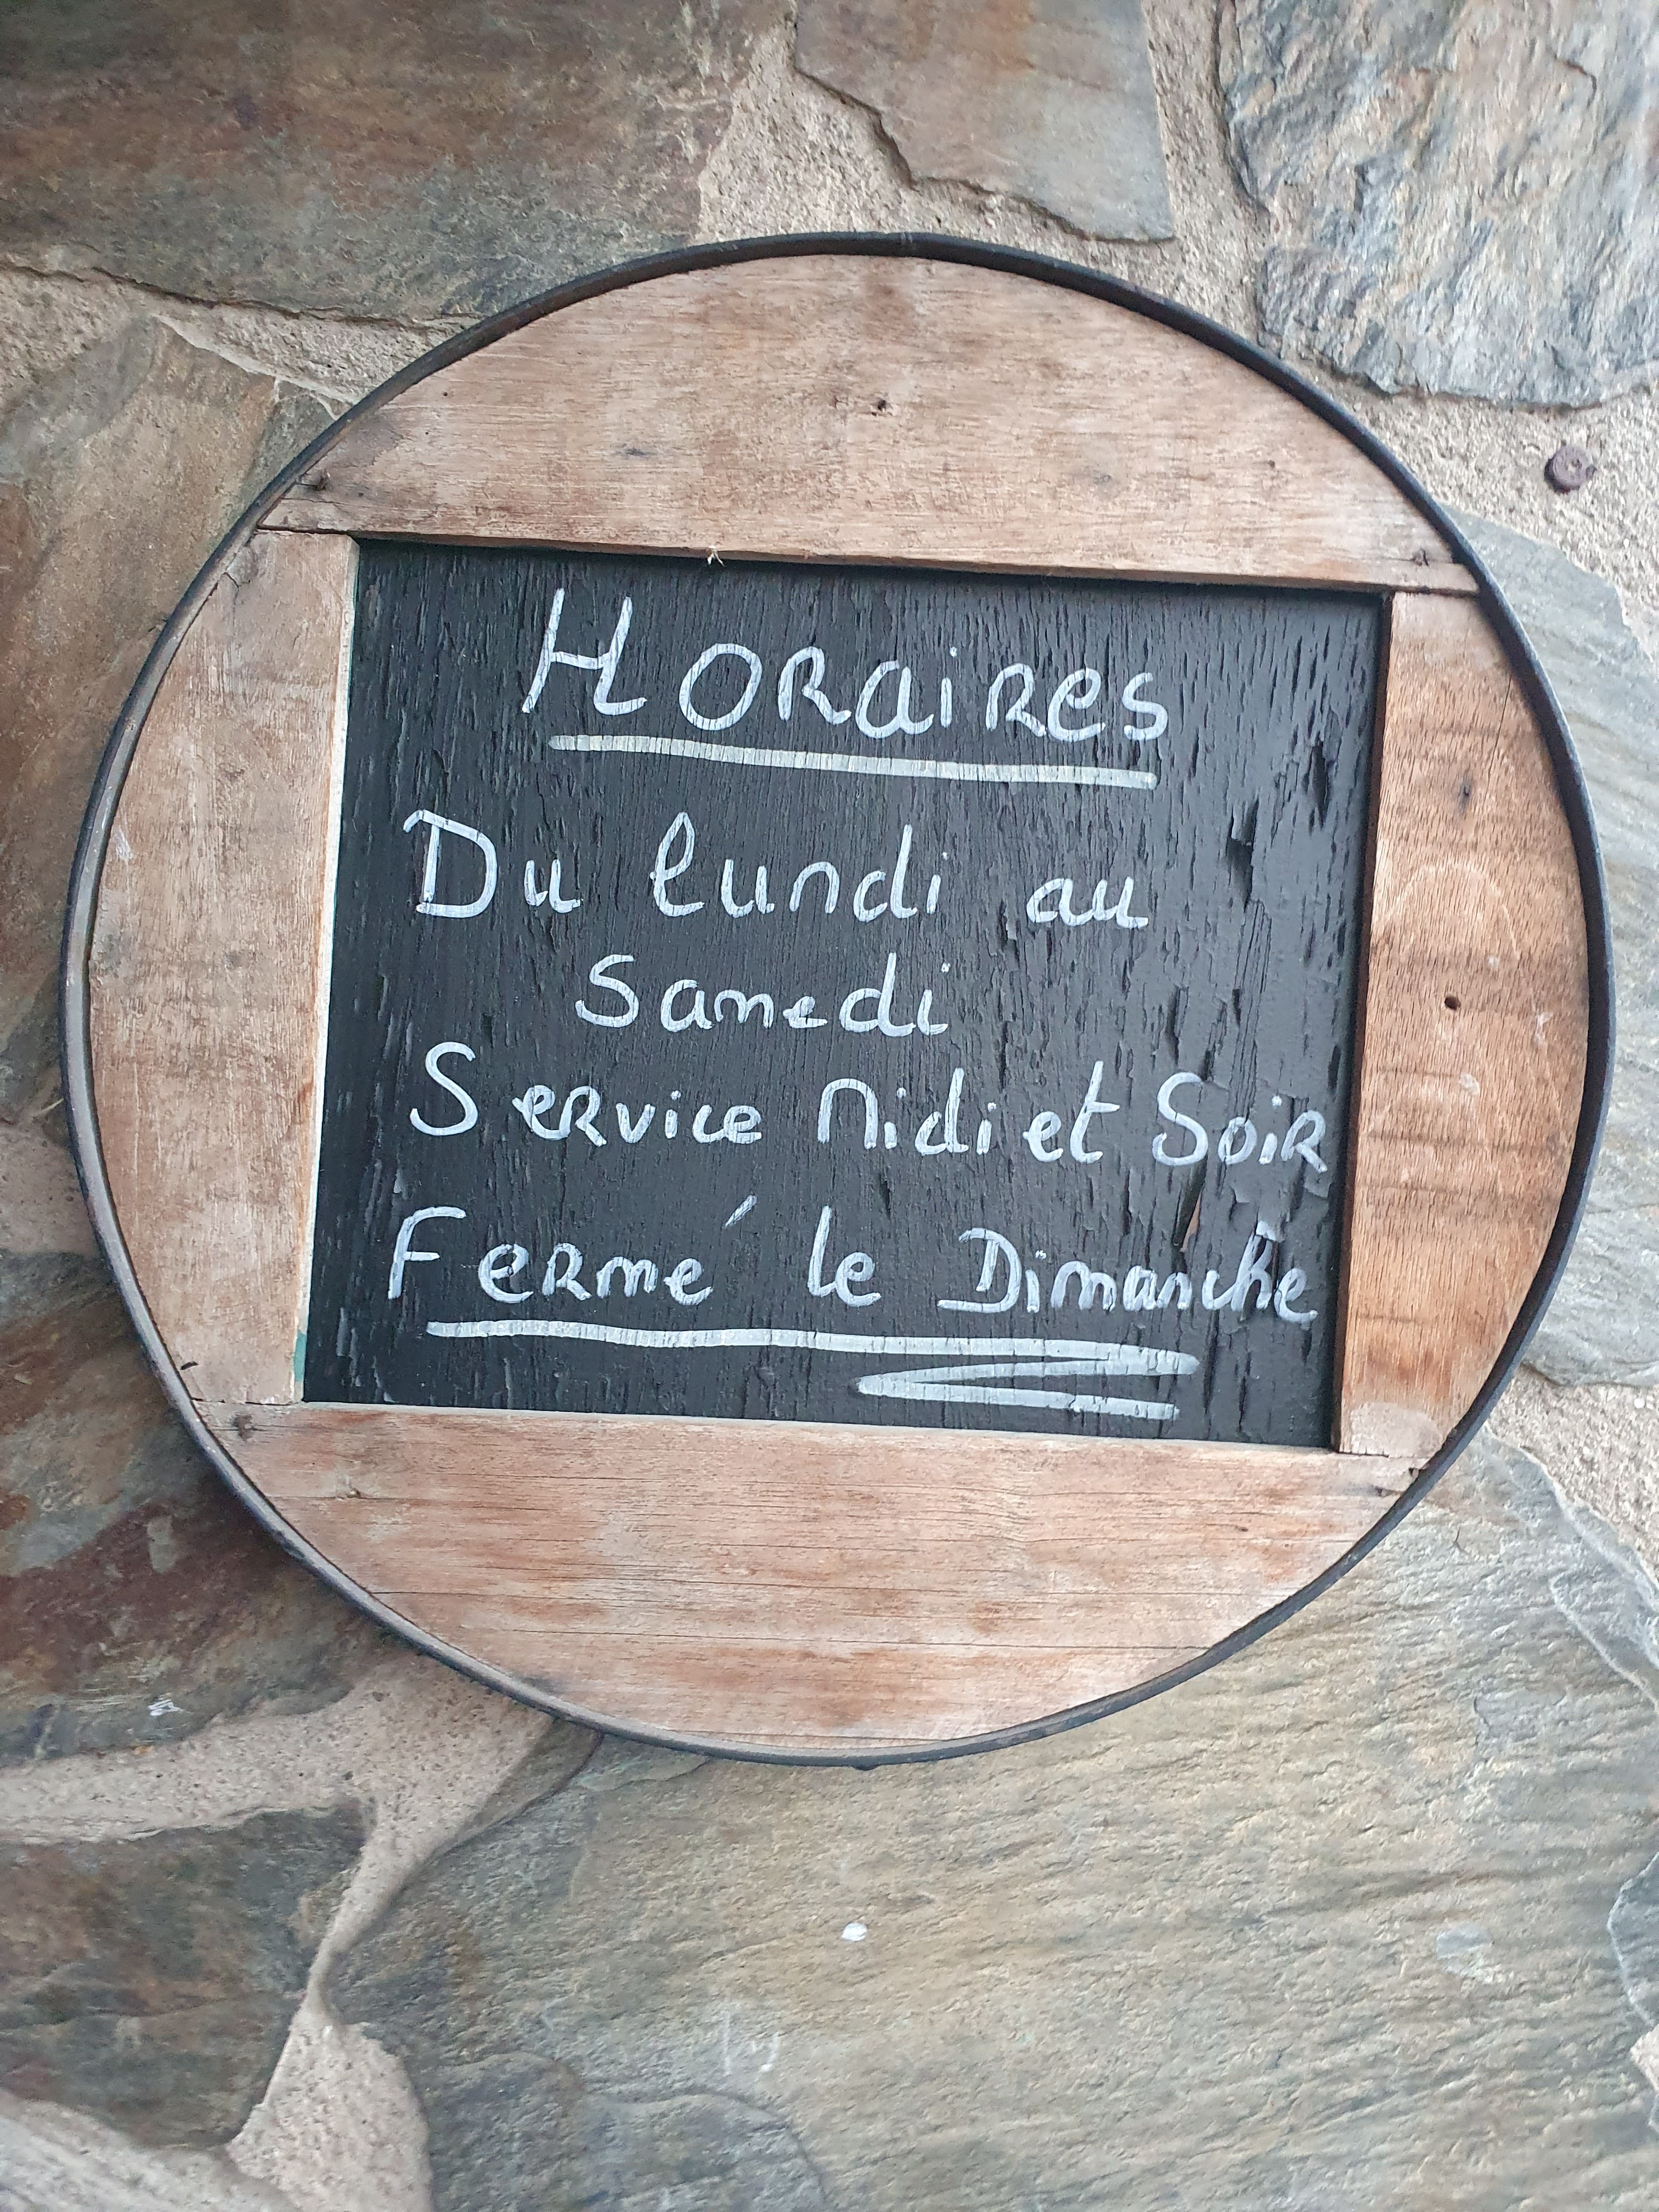 Horaires
Du lundi au
Samedi
Service Midi et Soir
Fermé le Dimanche